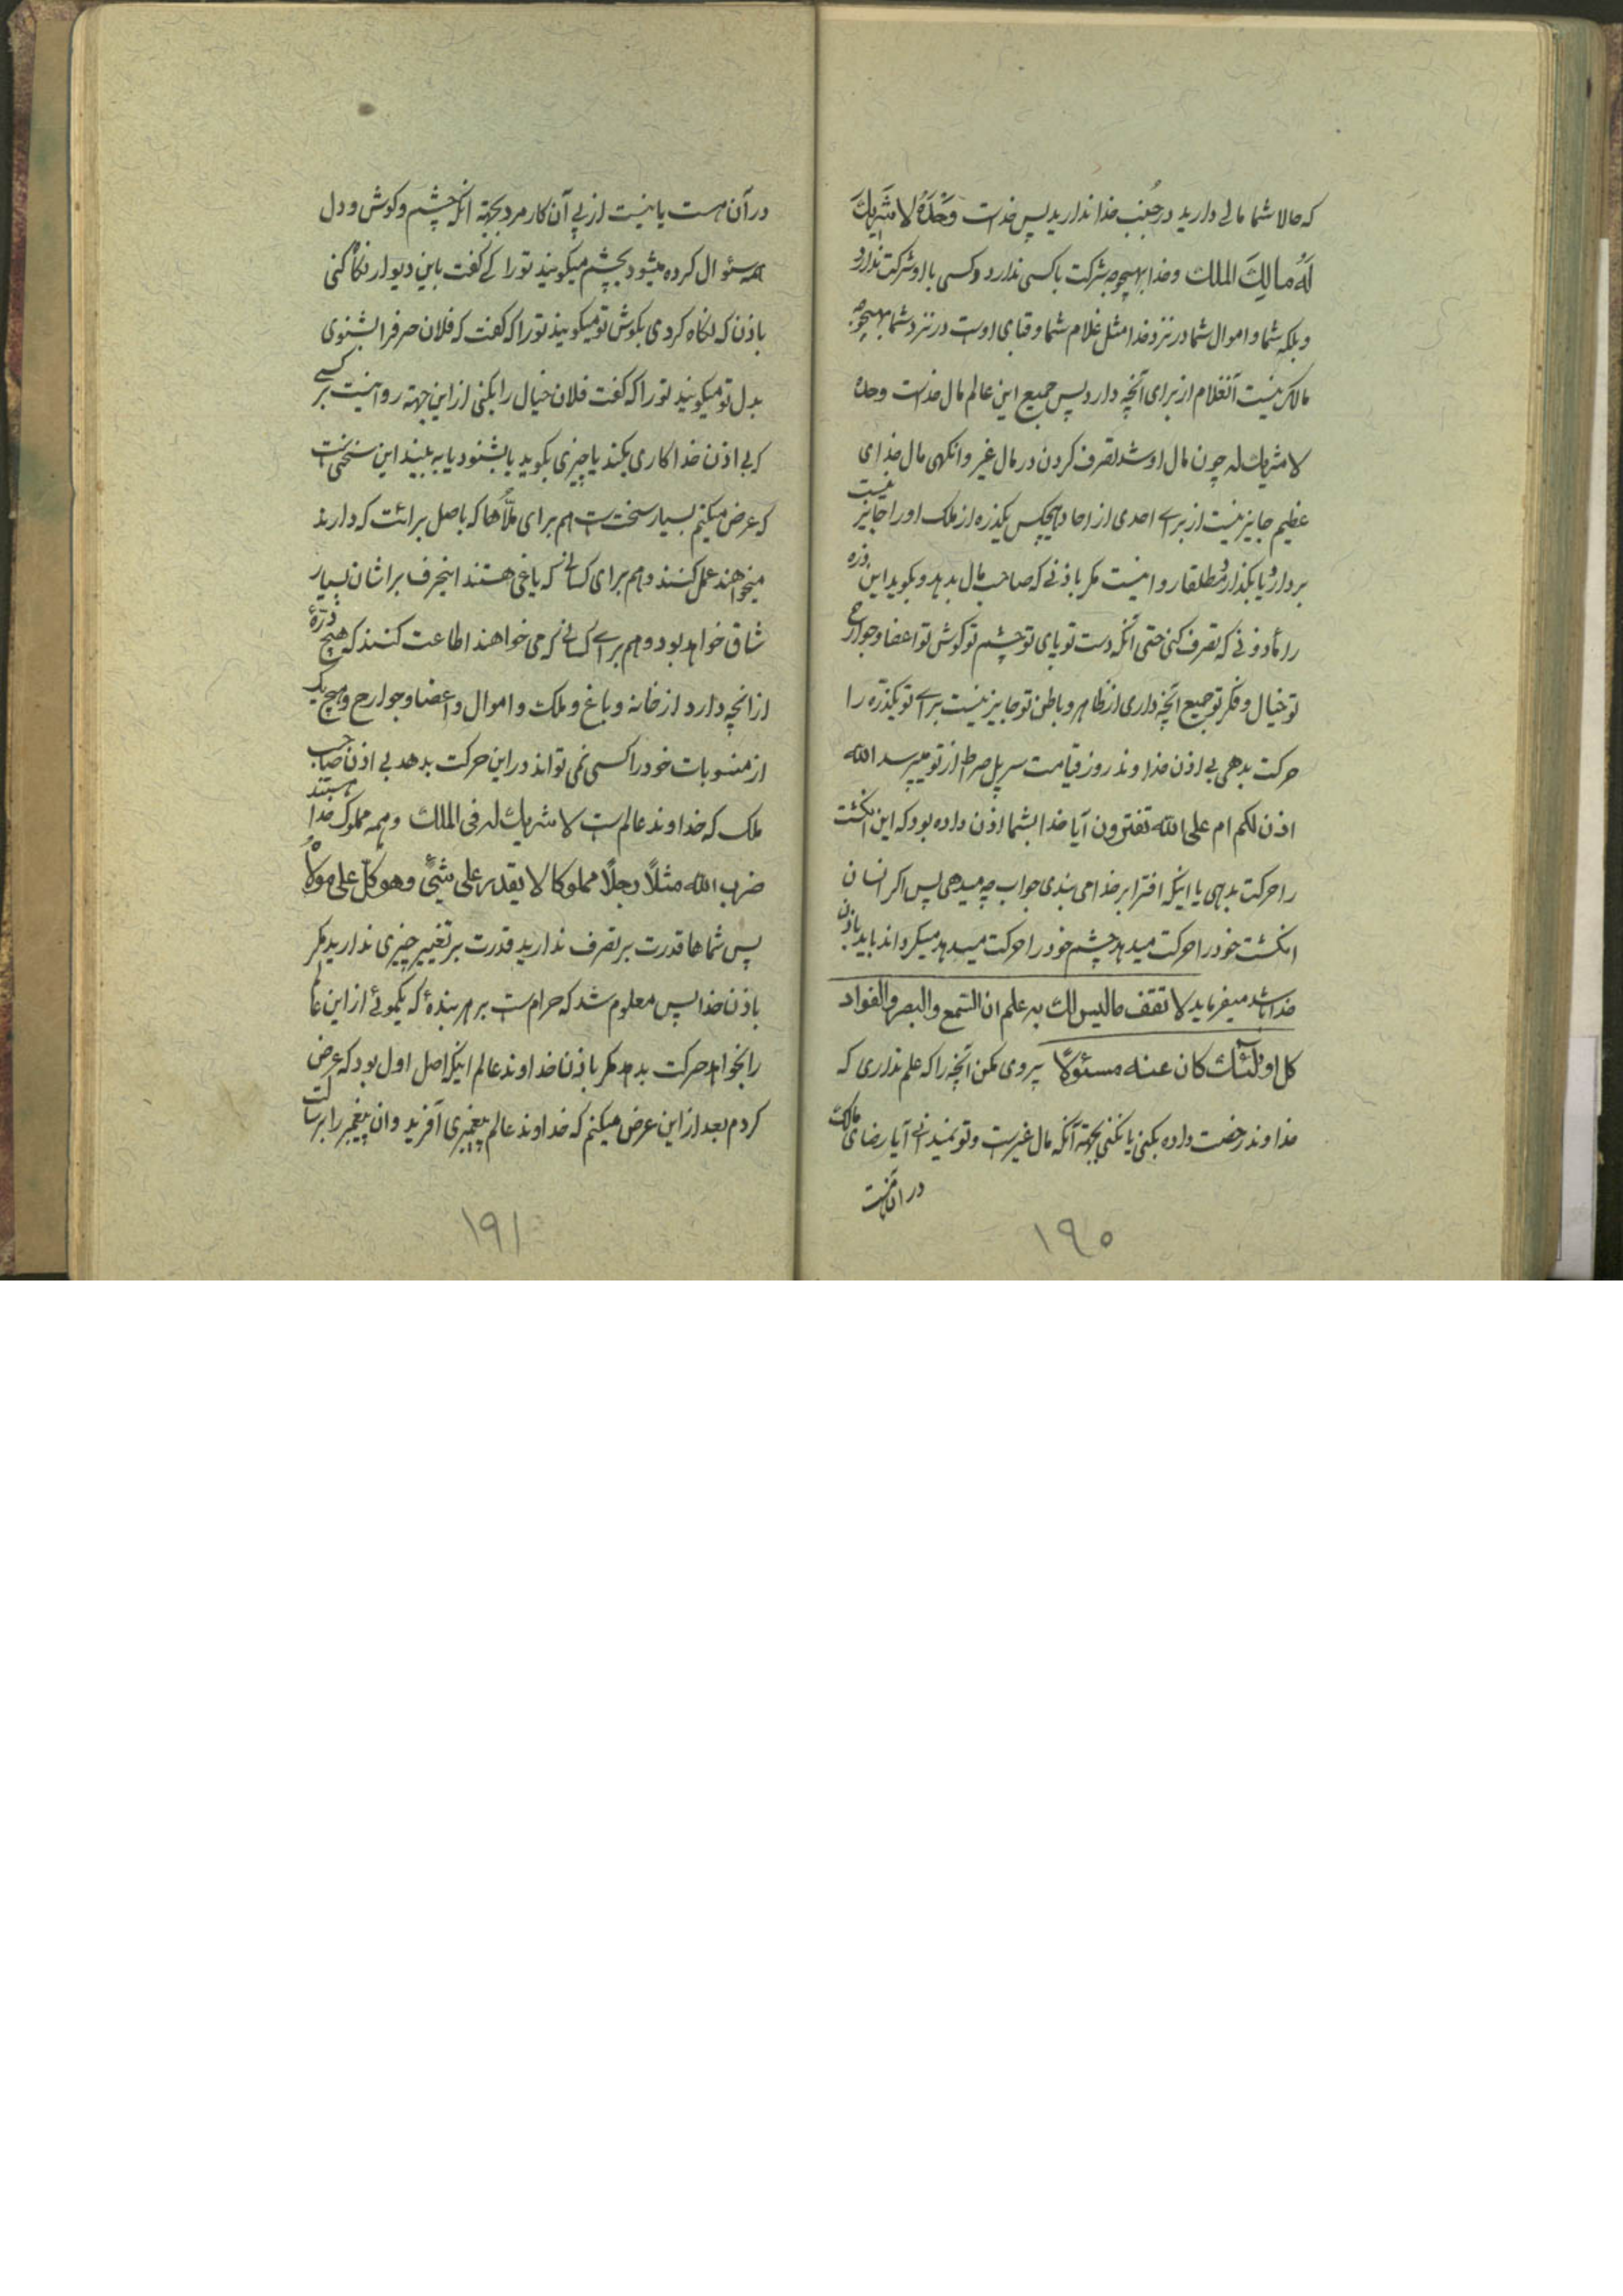 که حالا شما مالی دارید در جنب خدا ندارید پس خداست وَحْدَهُ لا شَرِیكَ
لَهُ مالِكَ الملك و خدا بهیچوجه شرکت با کسی ندارد و کسی با او شرکت ندارد
و بلکه شما و اموال شما در نزد خدا مثل غلام شما و قبای اوست در نزد شما بهیچوجه
مالک نیست آنغلام از برای آنچه دارد پس جمیع این عالم مال خداست وحده
لا شریك له چون مال او شد تصرف کردن در مال غیر وانگهی مال خدای
عظیم جایز نیست از برای احدی از احاد هیچکس یکذره از ملک او را جایز نیست
بردارد و یا بگذارد و مطلقا روا نیست مگر باذنی که صاحب مال بدهد و بگوید این ذره
را مأذونی که تصرف کنی حتی آنکه دست تو پای تو چشم تو گوش تو اعضا و جوارح
تو خیال و فکر تو جمیع آنچه داری از ظاهر و باطن تو جایز نیست برای تو یکذره را
حرکت بدهی بی اذن خداوند روز قیامت سر پل صراط از تو میپرسد الله
اذن لکم ام علی الله تفترون آیا خدا بشما اذن داده بود که این انگشت
را حرکت بدهی یا اینکه افترا بر خدا می بندی جواب چه میدهی پس اگر انسان
انگشت خود را حرکت میدهد چشم خود را حرکت میدهد میگرداند باید باذن
خدا باشد میفرماید لا تقف ما لیس لك به علم ان السّمع والبصر والفواد
کل اولٓئك کان عنه مسئولاً پیروی مکن آنچه را که علم نداری که
خداوند رخصت داده بکنی یا نکنی بجهة آنکه مال غیرست و تو نمیدانی آیا رضای مالک
در آن هست
۱۹۰
در آن هست یا نیست از پی آن کار مرو بجهة آنکه چشم و گوش و دل
همه سئوال کرده میشود بچشم میگویند تو را که گفت باین دیوار نگاه کنی
باذن که نگاه کردی بگوش تو میگویند تو را که گفت که فلان حرف را بشنوی
بدل تو میگویند تو را که گفت فلان خیال را بکنی از این جهة روا نیست بر کسی
که بی اذن خدا کاری بکند یا چیزی بگوید یا بشنود یا به بیند این سخنی است
که عرض میکنم بسیار سخت است هم برای ملّاها که باصل برائت که دارند
میخواهند عمل کنند و هم برای کسانی که یاغی هستند اینحرف براشان بسیار
شاق خواهد بود و هم برای کسانی که می خواهند اطاعت کنند که هیچ ذرّهٔ
از آنچه دارد از خانه و باغ و ملک و اموال و اعضا و جوارح و هیچ یک
از منسوبات خود را کسی نمی تواند در این حرکت بدهد بی اذن صاحب
ملک که خداوند عالم است لا شریك له فی الملك و همه مملوک خدا هستند
ضرب الله مثلاً رجلاً مملوکا لا یقدر علی شئ وهو کلّ علی مولاه
پس شماها قدرت بر تصرف ندارید قدرت بر تغییر چیزی ندارید مگر
باذن خدا پس معلوم شد که حرام است بر هر بندهٔ که یکموئی از این عالم
را بخواهد حرکت بدهد مگر باذن خداوند عالم اینکه اصل اول بود که عرض
کردم بعد از این عرض میکنم که خداوند عالم پیغمبری آفرید و ان پیغمبر را برسالت
۱۹۱